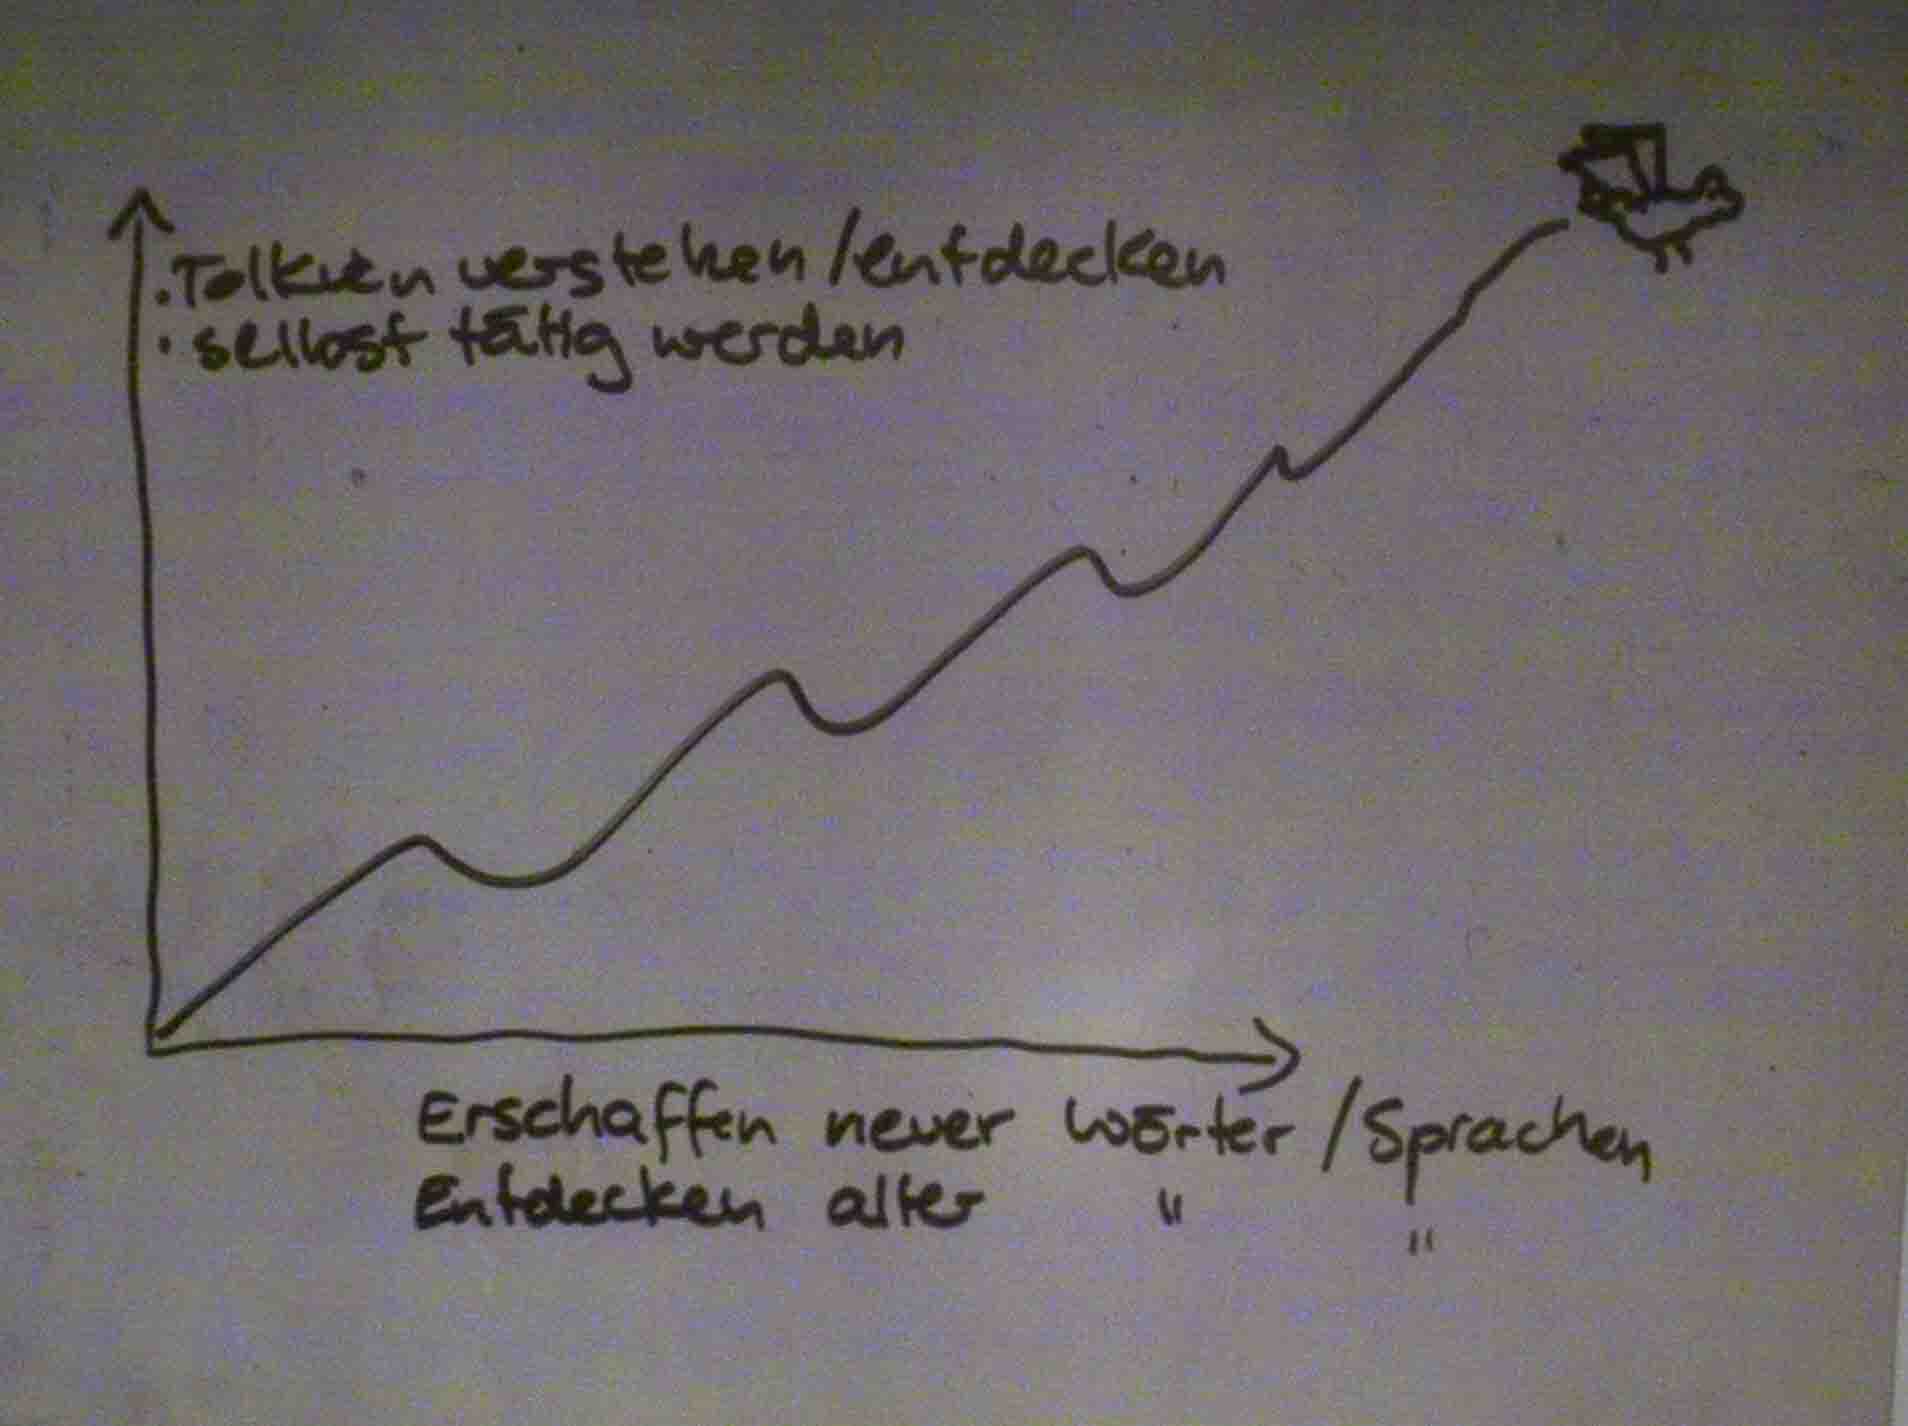 · Tolkien verstehen / entdecken
· selbst tätig werden
Erschaffen neuer Wörter / Sprachen
Entdecken alter " "